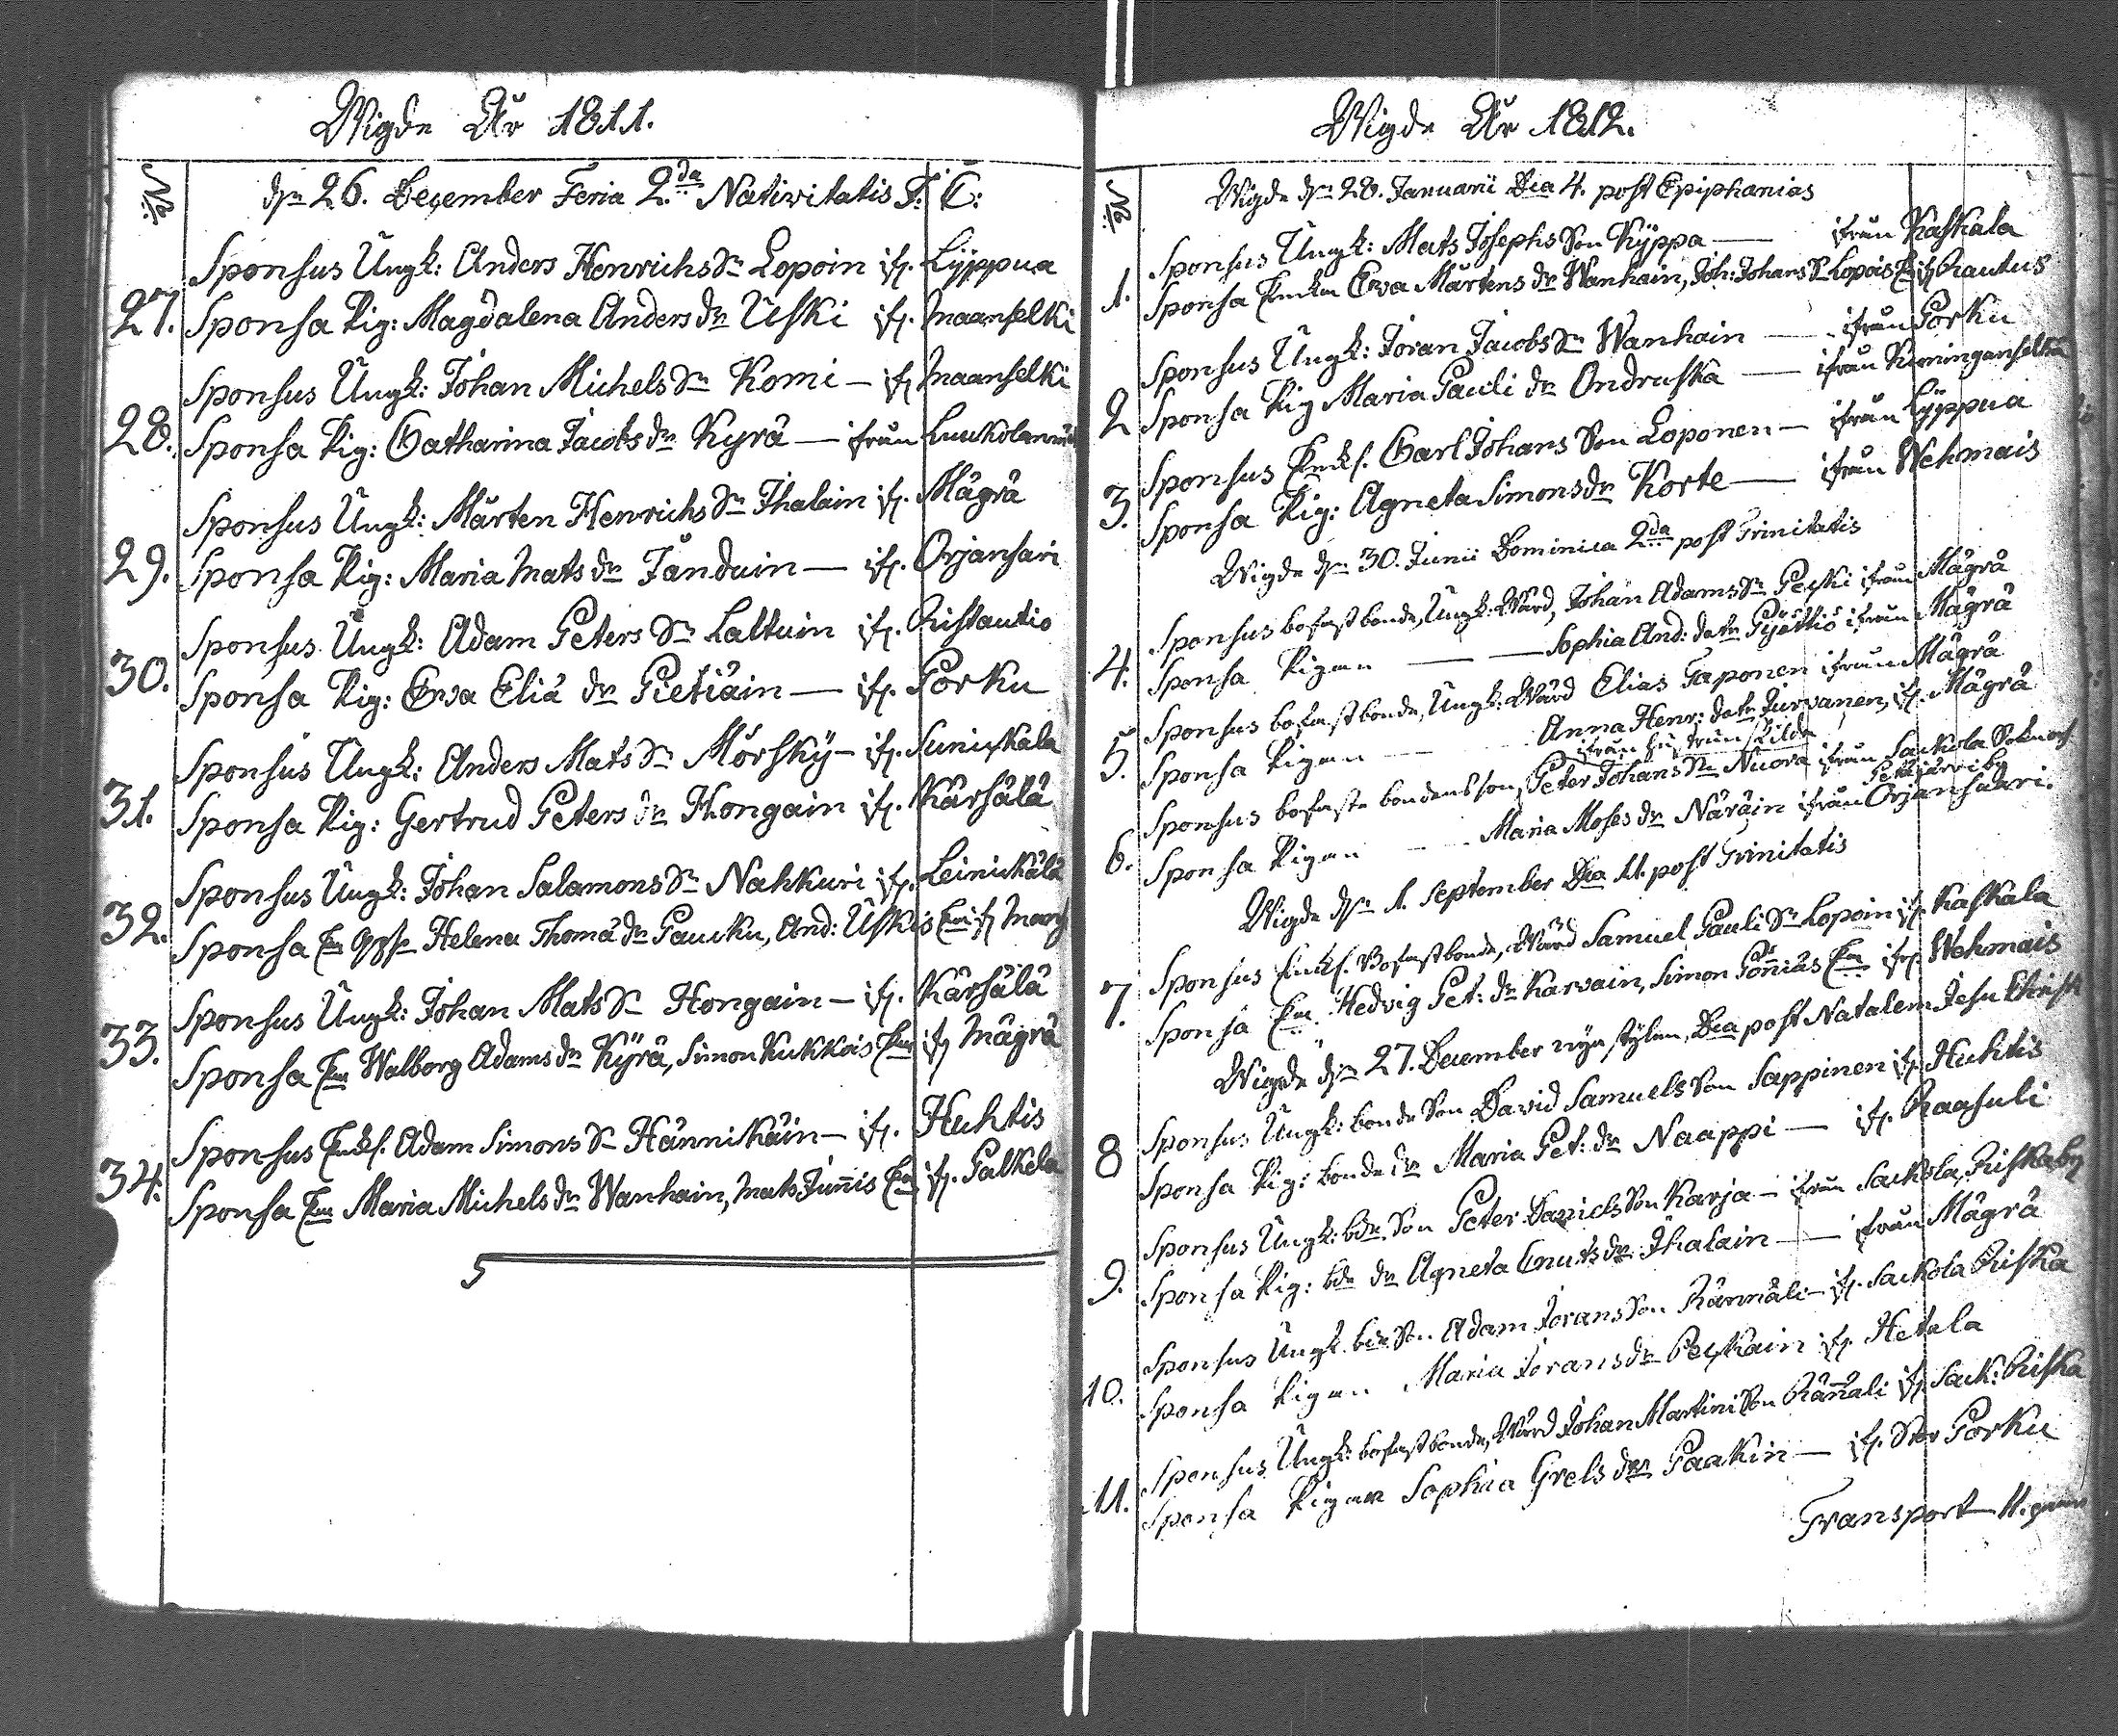 Wigde År 1811.
No:
dn 26. December Feria 2.da Nativitatis J: C:
Sponsus Ungk: Anders Henrichs Sn Lopoin ifr. Lyppua
27. Sponsa Pig: Magdalena Anders dr Uski ifr. Maanselki
Sponsus Ungk: Johan Michels Sn Komi — ifr. Maanselki
28. Sponsa Pig: Catharina Jacobs dr Kyrä — ifrån
Sponsus Ungk: Mårten Henrichs Sn Ihalain ifr. Mägrä
29. Sponsa Pig: Maria Mats dr Janduin — ifr. Orjansari
Sponsus Ungk: Adam Peters Sn Laltuin ifr. Ristautio
30. Sponsa Pig: Ewa Eliä dr Pietiäin — ifr. Porku
Sponsus Ungk: Anders Mats Sn Mörsky — ifr. Sunickala
31. Sponsa Pig: Gertrud Peters dr Hongain ifr. Kärsälä
Sponsus Ungk: Johan Salamons Sn Nahkuri ifr. Leinickälä
32. Sponsa Helena Thomä dr Paucku, And: Uskis Enk ifr
Sponsus Ungk: Johan Mats Sn Hongain — ifr. Kärsälä
33. Sponsa Enk Walborg Adams dr Kyrä, Simon Kukkois Enk ifr Mägrä
Sponsus Enkl. Adam Simons Sn Hännikäin — ifr. Huhtis
34. Sponsa Enk Maria Michels dr Wanhain, Mats Junnis Enk ifr. Palkela
Wigde År 1812.
No:
Wigde dn 28. Januarii Dca 4. post Epiphanias
Sponsus Ungk: Mats Josephs Son Kyppa — ifrån Kaskala
1. Sponsa Enkan Ewa Mårtens dr Wanhain, Joh: Johans Sn Lopois Enk ifr Rautus
Sponsus Ungk: Joran Jacobs Sn Wanhain — ifrån Porku
2 Sponsa Pig Maria Pauli dr Ondruska — ifrån Kuninganselkä
Sponsus Enkl. Carl Johans Son Loponen — ifrån Lyppua
3. Sponsa Pig: Agneta Simons dr Korte — ifrån Wehmais
Wigde dn 30. Junii Dominica 2da post Trinitatis
Sponsus bofast bonde, Ungk: Wärd, Johan Adams Sn Pecki ifrån Mägrä
4. Sponsa Pigan — — Sophia And: dotr Pyöttiö ifrån Mägrä
Sponsus bofast bonde, Ungk: Wärd Elias Taponen ifrån Mägrä
5. Sponsa Pigan — Anna Henr: dotr Jurvanen, ifr. Mägrä
ifrån hustrun skilde
Sponsus bofaste bondens son, Peter Johans Sn Nuora ifrån Sackola Sokn och
Petäjärvi by
6. Sponsa Pigan — Maria Moses dr Näräin ifrån Orjansaari.
Wigde dn 1. September Dca 11. post Trinitatis
Sponsus Enkl. Bofast bonde, Wärd Samuel Pauli Sn Lopoin ifr. Kaskala
7. Sponsa Enk. Hedvig Pet: dr Karvain, Simon Pönniäs Enk ifr. Wehmais
Wigde dn 27. December nya stylen, Dca post Natalem Jesu Christi
Sponsus Ungk: bonde Son David Samuels Son Sappinen ifr. Huhtis
8 Sponsa Pig: bonde dr Maria Pet: dr Naappi — ifr. Raasuli
Sponsus Ungk: bde Son Peter Daniels Son Karja — ifrån Sackola, Riska by
9. Sponsa Pig: bde dr Agneta Cnuts dr Ihalain — ifrån Mägrä
Sponsus Ungk. bde Son Adam Jorans Son Rännäli — ifr. Sackola Riska
10. Sponsa Pigan Maria Jorans dr Peckain ifr. Hetala
Sponsus Ungk: bofast bonde, Wärd Johan Martini Son Rännäli ifr. Sack: Riska
11. Sponsa Pigan Sophia Grels dr Paakin — ifr. Stor Porku
Transport 11.